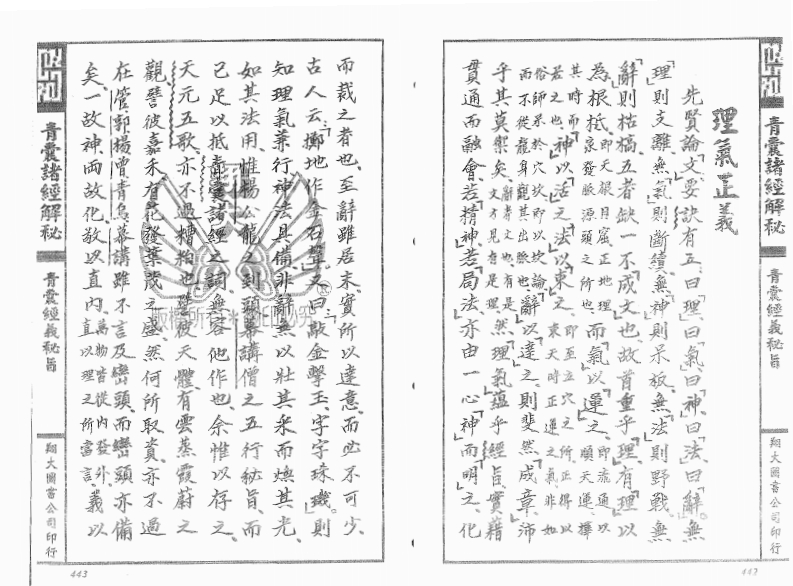 青囊諸經解秘
青囊經義秘旨
翔大圖書公司印行
理氣正義
先賢論文要訣有五曰理曰氣曰神曰法曰辭無
理則支離無氣則斷續無神則呆板無法則野戰無
辭則枯槁五者缺一不成文也故首重乎理有理以
為根柢即天根月窟正地理來發脈源頭之所也而氣以運之即流通以順天運擇
其時而神以活之法以束之即至立穴之所正得以束天時正運之氣非如
若之也俗師呆於穴坎即以坎論而不從龍身觀其出脈也辭以達之則斐然成章沛
乎其莫禦矣辭者文也有是文方見者是理然理氣蘊乎經旨實藉
貫通而融會若精神若局法亦由一心神而明之化
443
而裁之者也至辭雖居末實所以達意而必不可少
古人云擲地作金石聲又曰敲金擊玉字字珠璣則
知理氣兼行神法具備非辭無以壯其采而煥其光
如其法用惟楊公龍之到頭幕講僧之五行秘旨而
已足以抵青囊諸經之詞無容他作也余惟以存之
天元五歌亦不過糟粕也譬彼天體有雲蒸霞蔚之
觀譬彼嘉禾有花發葉茂之盛然何所取資亦不過
在管郭楊曾青烏幕講雖不言及巒頭而巒頭亦備
矣一故神兩故化敬以直內萬物皆從內發外直以理之所當言義以
青囊諸經解秘
青囊經義秘旨
翔大圖書公司印行
443